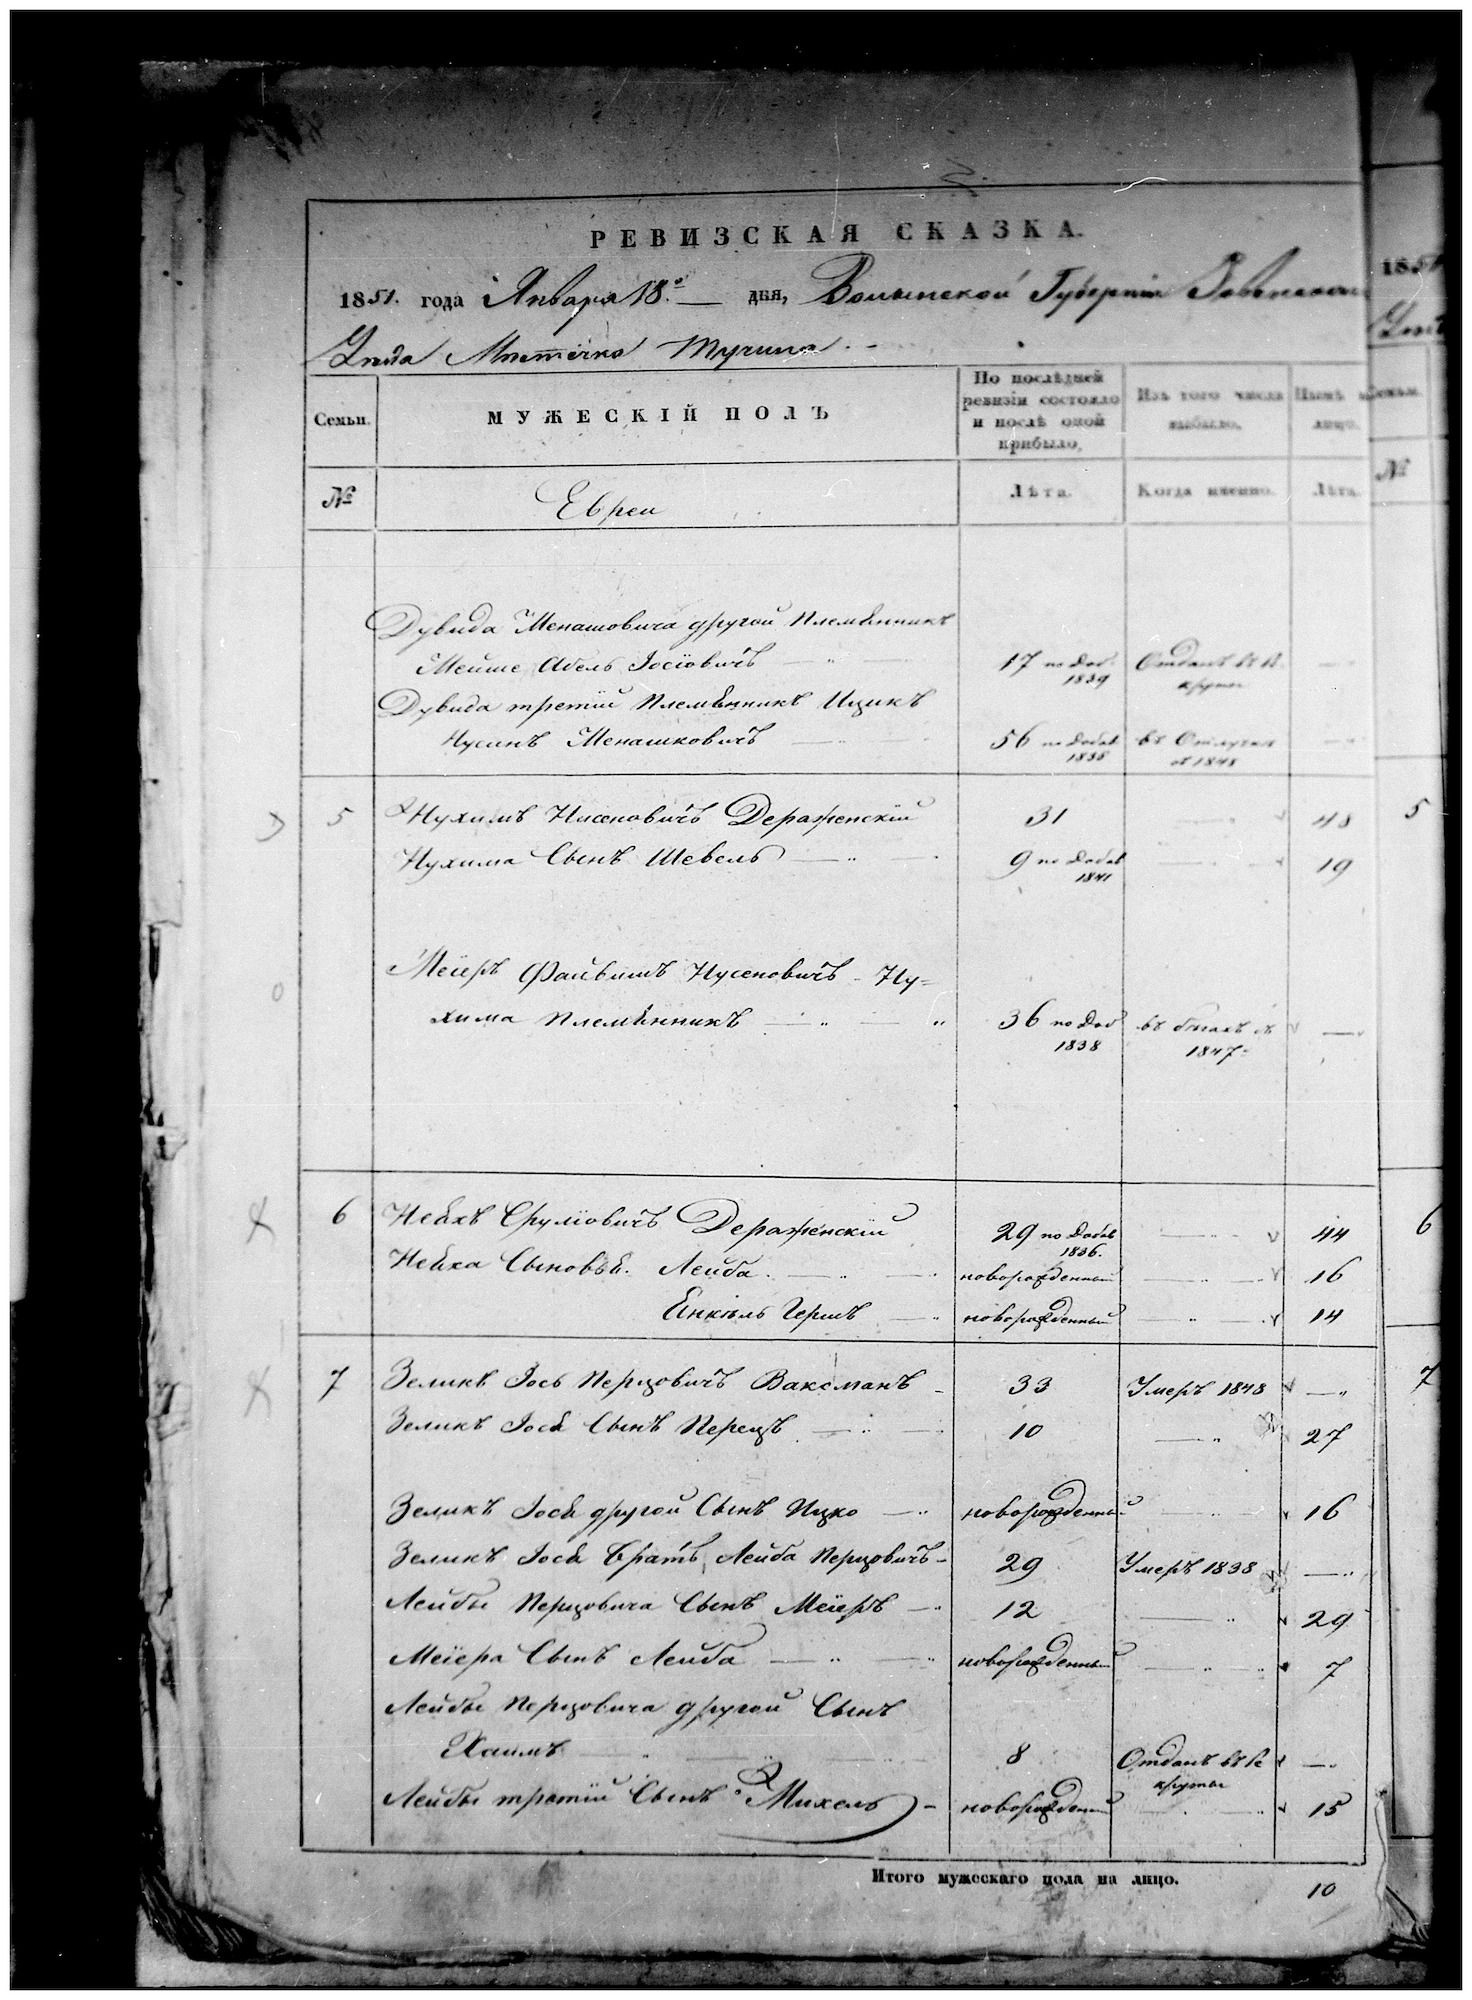 РЕВИЗСКАЯ СКАЗКА.
1851. года Января 18.го дня, Волынской Губерніи Ровенскаго
Уезда Мѣстечка Тучина
Семьи.
МУЖЕСКІЙ ПОЛЪ
По послѣдней ревизіи состояло и послѣ оной прибыло,
Изъ того числа выбыло,
Нынѣ на лицо.
№
Евреи
Лѣта.
Когда именно.
Лѣта.
Дувида Менашовича другой племѣнникъ
Мейше Абель Іосіовичъ 17 по Доб. 1839 Отданъ въ Рекруты
Дувида третій племѣнникъ Ицикъ
Нусинъ Менашковичъ 56 по Добав 1835 въ Отлучки съ 1848
5 Нухимъ Нисеновичъ Деражненскій 31 48
Нухима Сынъ Шевель 9 по Добав 1841 19
Мейеръ Файвишъ Нусеновичъ Ну=
хима племѣнникъ 36 по Доб 1838 въ бѣгахъ съ 1847
6 Сруліовичъ Деражненскій 29 по Добав 1836. 44
Сыновья. Лейба новорожденный 16
Янкель Гершъ новорожденный 14
7 Зеликъ Іось Перцовичъ Ваксманъ 33 Умеръ 1848
Зеликъ Іося Сынъ Перецъ 10 27
Зеликъ Іося другой Сынъ Ицко новорожденный 16
Зеликъ Іося Братъ, Лейба Перцовичъ 29 Умеръ 1838
Лейбы Перцовича Сынъ Мейеръ 12 29
Мейера Сынъ Лейба новорожденный 7
Лейбы Перцовича другой Сынъ
Хаимъ 8 Отданъ въ Рекруты
Лейбы третій Сынъ Михель новорожденный 15
Итого мужескаго пола на лицо. 10
1851
№
5
6
7